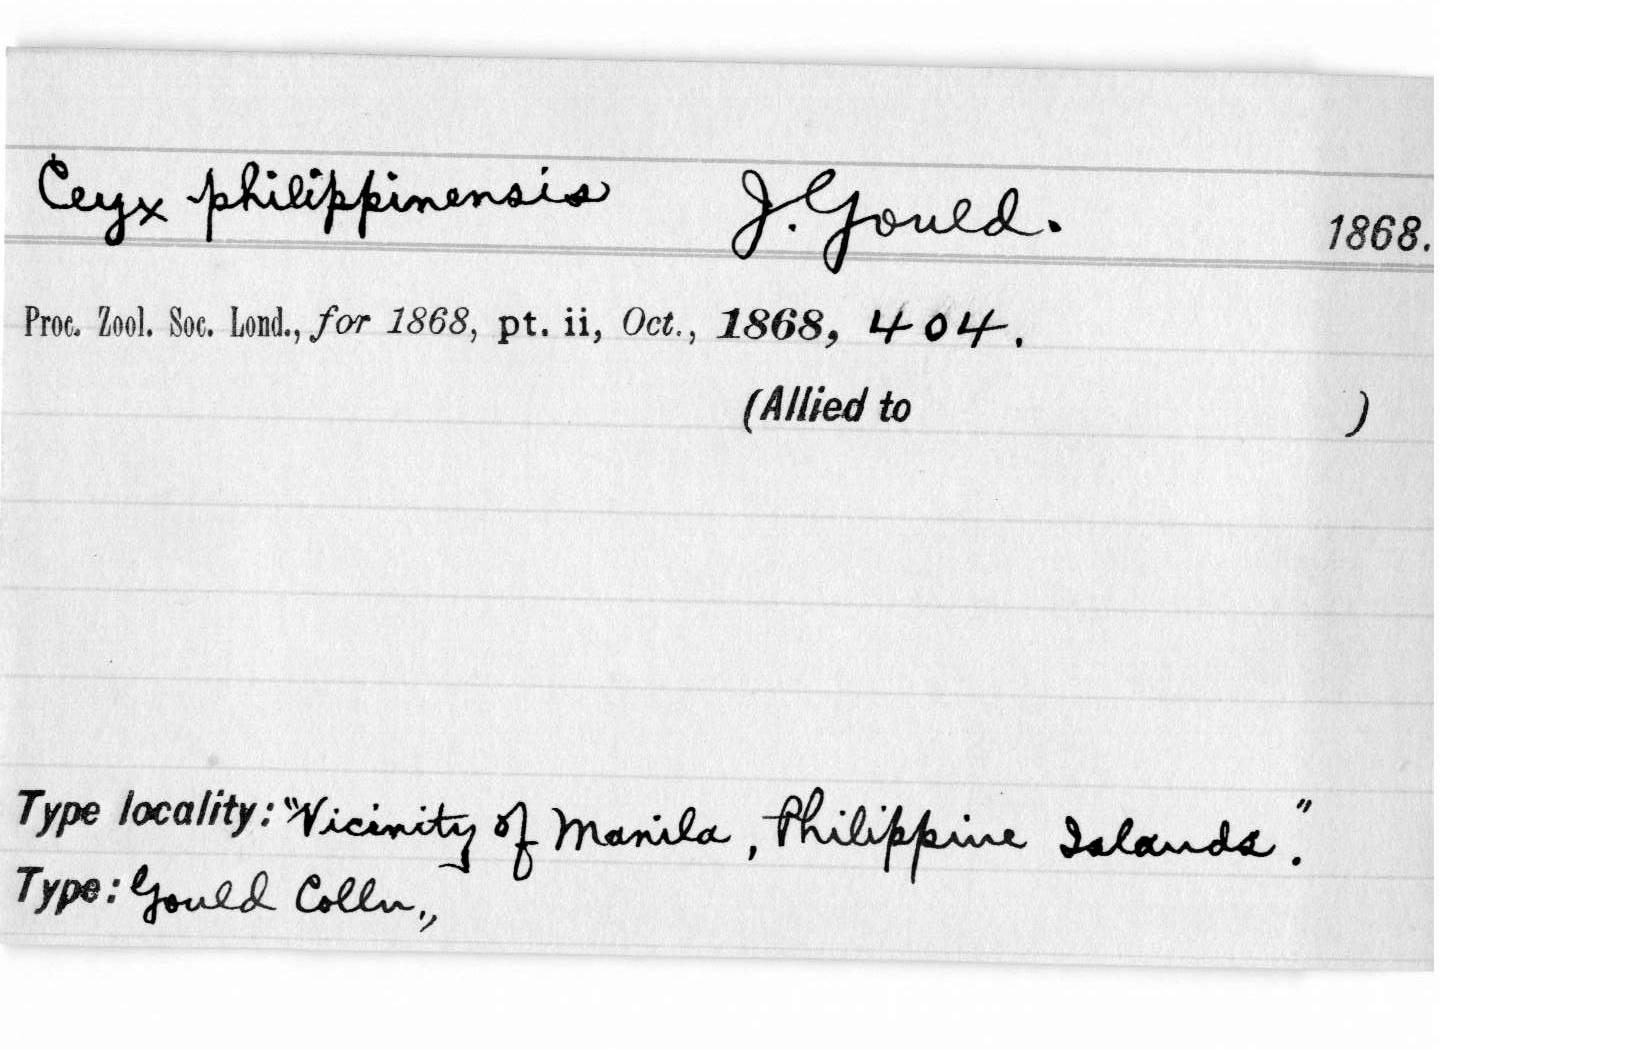 Ceyx philippinensis J. Gould. 1868.
Proc. Zool. Soc. Lond., for 1868, pt. ii, Oct., 1868, 404.
(Allied to )
Type locality: "Vicinity of Manila, Philippine Islands."
Type: Gould Colln.,,